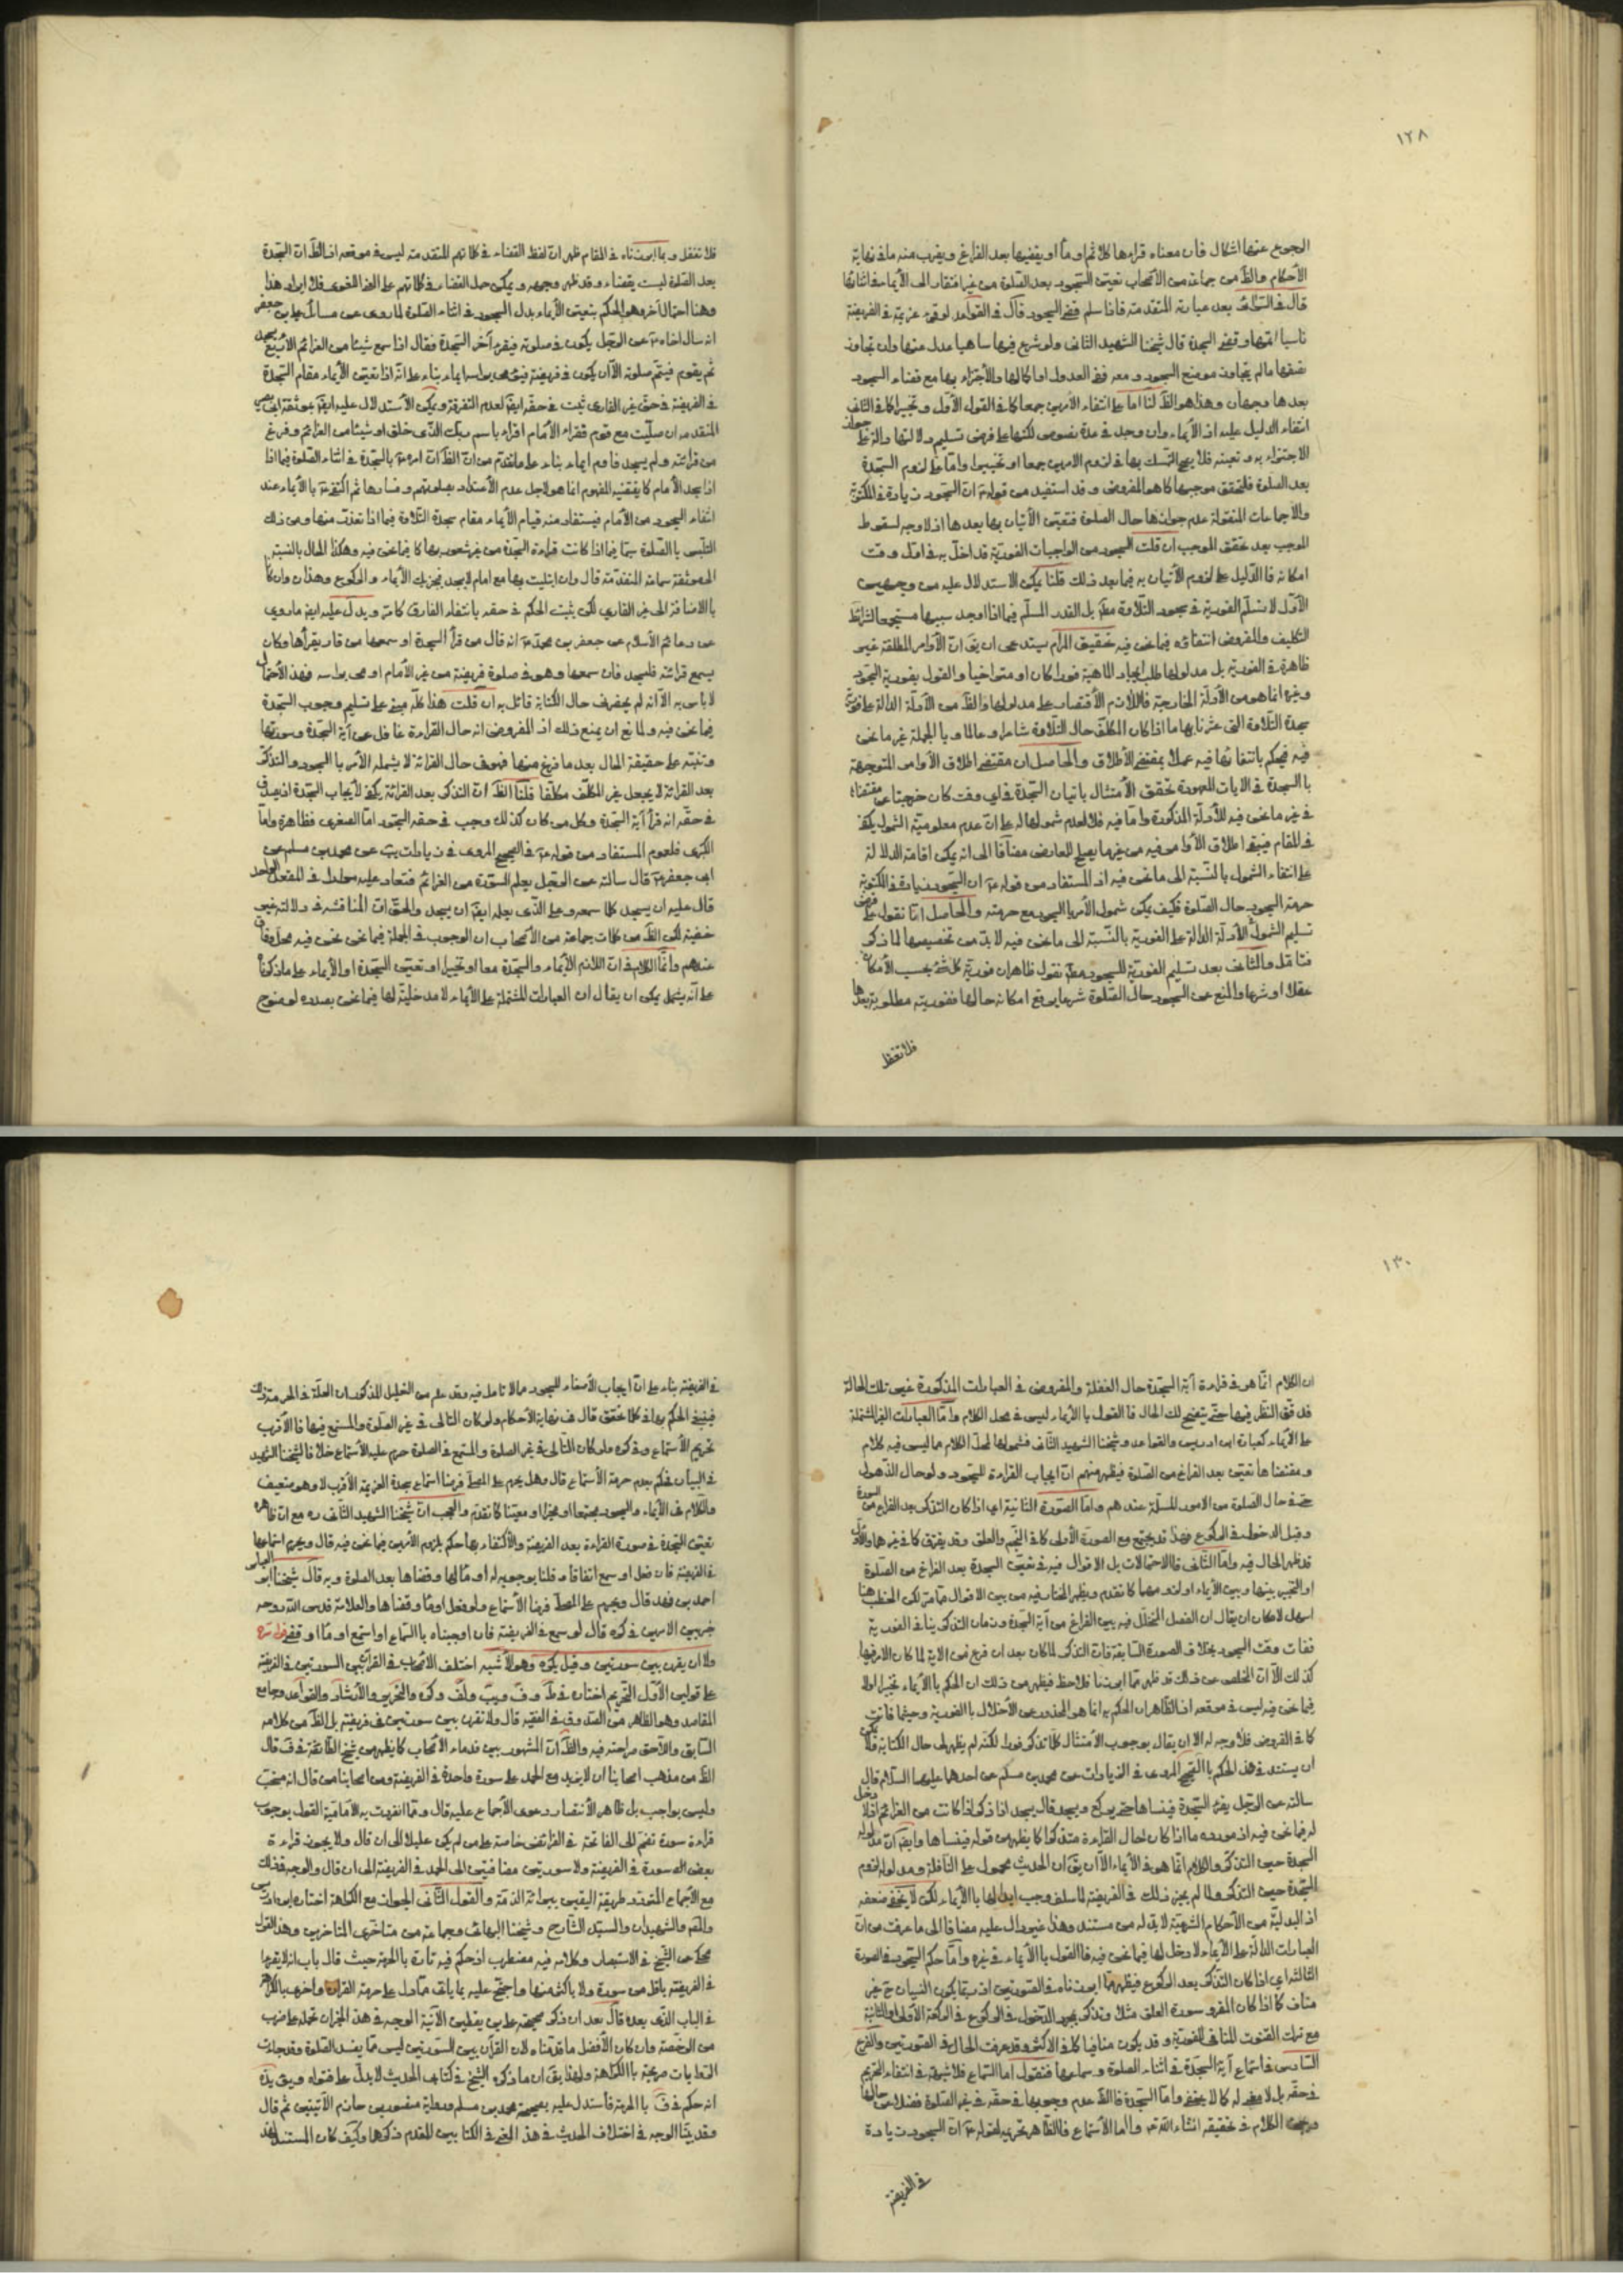 ١٢٨
الرجوع عنها اشكال فان معناه قراءها كلا ثم او مأ او يقضيها بعد الفراغ ويقرب منه ما في نهاية
الأحكام والظ من جماعة من الأصحاب تعيين السجود بعد الصلوة من غير افتقار الى الأيماء في اثنائها
قال في السرائر بعد عبارته المتقدمة فاذا سلم قضى السجود قال في القواعد لو قرء عزيمة في الفريضة
ناسيا اتمها وقضى السجدة قال شيخنا الشهيد الثانى ولو شرع فيها ساهيا عدل عنها وان تجاوز
نصفها ما لم يتجاوز موضع السجود ومعه ففى العدول او اكمالها والأجتزاء بها مع قضاء السجود
بعدها وجهان وهذا هو الظ لنا اما على انتفاء الأمرين جمعا كما في القول الأول وتخييرا كما في الثانى
انتفاء الدليل عليه اذ الأيماء وان وجد في عدة نصوص لكنها على فرض تسليم دلالتها والظ جواز
الاجتزاء به وتعينه فلا يصح التمسك بها في لزوم الامرين جمعا او تخييرا واما على لزوم السجدة
بعد الصلوة فلتحقق موجبها كما هو المفروض وقد استفيد من قوله ع ان السجود زيادة في المكتوبة
والأجماعات المنقولة عدم جوازها حال الصلوة فتعين الأتيان بها بعدها اذ لا وجه لسقوط
الموجب بعد تحقق الموجب ان قلت السجود من الواجبات الفورية قد اخل به في اول وقت
امكانه فما الدليل على لزوم الأتيان به فيما بعد ذلك قلنا يمكن الاستدلال عليه من وجهين
الأول لا نسلم الفورية في سجود التلاوة مط بل القدر المسلم فيما اذا وجد سببها مستجمعا لشرائط
التكليف والمفروض انتفاؤه فيما نحن فيه تحقيق المرام يستدعى ان يق ان الأوامر المطلقة غير
ظاهرة في الفورية بل مدلولها طلب ايجاد الماهية فورا كان او متراخيا والقول بفورية السجود
وغيره انما هو من الأدلة الخارجية فاللازم الأقتصار على مدلولها والظ من الأدلة الدالة على فورية
سجدة التلاوة التى عثرنا بها ما اذا كان المكلف حال التلاوة شاعرا وعالما وبالجملة غير ما نحن
فيه فيحكم بانتفائها فيه عملا بمقتضى الأطلاق والحاصل ان مقتضى اطلاق الأوامر المتوجهة
بالسجدة في الايات المعهودة تحقق الأمتثال باتيان السجدة في اي وقت كان خرجنا عن مقتضاه
في غير ما نحن فيه للأدلة المذكورة واما فيه فلا لعدم شمولها له على ان عدم معلومية الشمول يكفى
في المقام فيبقى اطلاق الأوامر فيه من غير ما يصلح للمعارض مضافا الى انه يمكن اقامة الدلالة
على انتفاء الشمول بالنسبة الى ما نحن فيه اذ المستفاد من قوله ع ان السجود زيادة في المكتوبة
حرمة السجود حال الصلوة فكيف يمكن شمول الأمر بالسجود مع حرمته والحاصل انا نقول على فرض
تسليم الشمول الأدلة الدالة على الفورية بالنسبة الى ما نحن فيه لا بد من تخصيصها لما ذكر
فتامل والثانى بعد تسليم الفورية للسجود مط نقول ظاهر ان فورية كل شئ بحسب الأمكان
عقلا او شرعا والمنع عن السجود حال الصلوة شرعا يدفع امكانه حالها ففوريته مطلوبة بعدها
فلا تغفل
فلا تغفل وبما ابرزناه في المقام ظهر ان لفظ القضاء في كلماتهم المتقدمة ليس في موقعه اذ الظ ان السجدة
بعد الصلوة ليست بقضاء وقد ظهر وجهه ويمكن حمل القضاء في كلماتهم على المعنى اللغوى فلا ايراد هذا
وهنا احتمال آخر وهو الحكم بتعيين الأيماء بدل السجود في اثناء الصلوة لما روى عن مسائل على بن جعفر
انه سال اخاه ع عن الرجل يكون في صلوته فيقرء آخر السجدة فقال اذا سمع شيئا من العزائم الأربع يسجد
ثم يقوم فيتم صلوته الا ان يكون في فريضة فيؤمى براسه ايماء بناء على انه اذا تعين الأيماء مقام السجدة
في الفريضة في حق غير القارى ثبت في حقه ايض لعدم التفرقة ويمكن الأستدلال عليه ايض بموثقة ابى بصير
المتقدمة ان صليت مع قوم فقراء الأمام اقراء باسم ربك الذى خلق او شيئا من العزائم وفرغ
من قرائته ولم يسجد فاوم ايماء بناء على ما تقدم من ان الظ ان امره ع بالسجدة في اثناء الصلوة فيما اذا
اذا سجد الأمام كما يقتضيه المفهوم انما هو لاجل عدم الأعتداد بصلوتهم وفسادها ثم اكتفى ع بالأيماء عند
انتفاء السجود من الأمام فيستفاد منه قيام الأيماء مقام سجدة التلاوة فيما اذا تعذرت منها ومن ذلك
التلبس بالصلوة سيما فيما اذا كانت قراءة السجدة من غير شعور بها كما فيما نحن فيه وهكذا الحال بالنسبة
الى موثقة سماعة المتقدمة قال وان ابتليت بها مع امام لا يسجد فيجزيك الأيماء والركوع وهذان وان كانا
بالاضافة الى غير القارى لكن يثبت الحكم في حقه بانتفاء الفارق كما مر ويدل عليه ايض ما روى
عن دعائم الأسلام عن جعفر بن محمد ع انه قال من قرأ السجدة او سمعها من قارئ يقرأها وكان
يسمع قرائته فليسجد فان سمعها وهو في صلوة فريضة من غير الأمام اومى براسه وهذا الأحتمال
لا باس به الا انه لم يحضرنى حال الكتابة قائل به ان قلت هذا كله مبنى على تسليم وجوب السجدة
فيما نحن فيه ولمانع ان يمنع ذلك اذ المفروض انه حال القراءة غافل عن آية السجدة وسورتها
وتنبه على حقيقة الحال بعد ما فرغ منها فهو في حال القرائة لا يشمله الأمر بالسجود والتذكر
بعد القرائة لا يجعل غير المكلف مكلفا قلنا الظ ان التذكر بعد القرائة يكفى لأيجاب السجدة اذ يصدق
في حقه انه قرأ آية السجدة وكل من كان كذلك وجب في حقه السجود اما الصغرى فظاهرة واما
الكبرى فلعموم المستفاد من قوله ع في الصحيح المروى في زيادات يب عن محمد بن مسلم عن
ابى جعفر ع قال سالته عن الرجل يعلم السورة من العزائم فتعاد عليه مرارا في المقعد الواحد
قال عليه ان يسجد كلما سمعه وعلى الذى يعلمه ايض ان يسجد والحق ان المناقشة في دلالته غير
خفية لكن الظ من كلمات جماعة من الأصحاب ان الوجوب في الجملة فيما نحن نحن فيه محل وفاق
عندهم وانما الكلام في ان اللازم الأيماء والسجدة معا او تخييرا او تعيين السجدة او الأيماء على ما ذكرنا
على انه يشمل يمكن ان يقال ان العبارات المشتملة على الأيماء لا مدخلية لها فيما نحن بصدده لوضوح
١٣٠
ان الكلام انما هو في قراءة آية السجدة حال الغفلة والمفروض في العبارات المذكورة غير تلك الحالة
فدقق النظر فيها حتى يتضح لك الحال فالقول بالأيماء ليس في محل الكلام واما العبارات الغير المشتملة
على الأيماء كعبارة ابن ادريس والقواعد وشيخنا الشهيد الثانى فشمولها لمحل الكلام مما ليس فيه كلام
ومقتضاها تعين بعد الفراغ من الصلوة فيظهر منهم ان ايجاب القراءة للسجود ولو حال الذهول
حتى في حال الصلوة من الامور المسلمة عندهم واما الصورة الثانية اى اذا كان التذكر بعد الفراغ من السورة
وقبل الدخول في الركوع فهذا قد يجتمع مع الصورة الأولى كما في النجم والعلق وقد يفترق كما في غيرهما والأول
قد ظهر الحال فيه واما الثانى فالاحتمالات بل الاقوال فيه في تعيين السجدة بعد الفراغ من الصلوة
او التخيير بينها وبين الأيماء او لزومهما كما تقدم ويظهر المختار فيه من بين الاقوال مما مر لكن الخطب هنا
اسهل لامكان ان يقال ان الفصل المتخلل فيه بين الفراغ من آية السجدة وزمان التذكر ينافى الفورية
ففات وقت السجود بخلاف الصورة السابقة فان التذكر لما كان بعد ان فرغ من الاية لما كان الامر فيها
كذلك الا ان المخلص عن ذلك قد ظهر مما ابرزنا فلاحظ فيظهر من ذلك ان الحكم بالأيماء تخييرا او لا
فيما نحن فيه ليس في موقعه اذ الظاهر ان الحكم به انما هو للحذر عن الأخلال بالفورية وحيثما فاتت
كما في الفروض فلا وجه له الا ان يقال بوجوب الأمتثال كلما تذكر فورا لكنه لم يظهر لى حال الكتابة قائل يمكن
ان يستند في هذا الحكم بالصحيح المروى في الزيادات عن محمد بن مسلم عن احدهما عليهما السلام قال
سالته عن الرجل يقرء السجدة فينساها حتى يركع ويسجد قال يسجد اذا ذكر اذا كانت من العزائم اذ لا دخل
له فيما نحن فيه اذ مورده ما اذا كان حال القراءة متذكرا كما يظهر من قوله فينساها وايض ان مدلوله
السجدة حين التذكر والكلام انما هو في الأيماء الا ان يق ان الحديث محمول على النافلة ومدلوله لزوم
السجدة حين التذكر ولما لم يجز ذلك في الفريضة لما سلف وجب ابدالها بالأيماء لكن لا يخفى ضعفه
اذ البدلية من الأحكام الشرعية لا بد له من مستند وهذا غير دال عليه مضافا الى ما عرفت من ان
العبارات الدالة على الأيماء لا دخل لها فيما نحن فيه فالقول بالأيماء في غيره واما حكم السجود في الصورة
الثالثة اى اذا كان التذكر بعد الركوع فيظهر مما ابرزناه في الصورتين اذ ربما يكون النسيان ح غير
مناف كما اذا كان المقرو سورة العلق مثلا وتذكر بمجرد الدخول في الركوع في الركعة الاولى او الثانية
مع ترك القنوت المنافى للفورية وقد يكون منافيا كما في الاكثر وقد عرفت الحال في الصورتين والفرع
السادس في استماع آية السجدة في اثناء الصلوة وسماعها فنقول اما السماع فلا شبهة في انتفاء التحريم
في حقه بل لا معنى له كما لا يخفى واما السجدة فالظ عدم وجوبها في حقه في غير الصلوة فضلا عن حالها
وسيجئ الكلام في تحقيقه انشاء الله تعم واما الأستماع فالظاهر تحريمه لقوله ع ان السجود زيادة
في الفريضة
في الفريضة بناء على ان ايجاب الأصغاء للسجود مما لا تامل فيه وقد علم من التعليل المذكور ان العلة في الحرمة ذلك
فينبغى الحكم بها في كلما تحقق قال ف نهاية الأحكام ولو كان التالى في غير الصلوة والمستمع فيها فالأقرب
تحريم الأستماع وفي كره ولو كان التالى في غير الصلوة والمستمع في الصلوة حرم عليه الأستماع خلافا لشيخنا الشهيد
في البيان فحكم بعدم حرمة الأستماع قال وهل يحرم على المصلى فرضا استماع سجدة العزيمة الأقرب لا وهو ضعيف
والكلام في الأيماء والسجود مجتمعا او مخيرا او معينا كما تقدم والعجب ان شيخنا الشهيد الثانى ره مع ان ظاهره
تعيين السجدة في صورة القراءة بعد الفريضة والأكتفاء بها حكم بلزوم الأمرين فيما نحن فيه قال ويحرم استماعها
في الفريضة فان فعل او سمع اتفاقا وقلنا بوجوبه له او مأ لها وقضاها بعد الصلوة وبه قال شيخنا ابو العباس
احمد بن فهد قال ويحرم على المصلى فرضا الأستماع ولو فعل اومأ وقضاها والعلامة قدس الله روحه
خير بين الامرين في كره قال لو سمع في الفريضة فان اوجبناه بالسماع او استمع اومأ او قضى قوله ره
ولا ان يقرن بين سورتين وقيل يكره وهو الأشبه اختلف الاصحاب في القران بين السورتين في الفريضة
على قولين الأول التحريم اختاره في ط و ف ويب و لف وكره والتحرير والأرشاد والقواعد وجامع
المقاصد وهو الظاهر من الصدوق في الفقيه قال ولا تقرن بين سورتين في فريضة بل الظ من كلامه
السابق واللاحق صراحته فيه والظ ان المشهور بين قدماء الاصحاب كما يظهر من شيخ الطائفة في ف قال
الظ من مذهب اصحابنا ان لا يزيد مع الحمد على سورة واحدة في الفريضة ومن اصحابنا من قال انه مستحب
وليس بواجب بل ظاهر الأنتصار دعوى الأجماع عليه قال ومما انفردت به الأمامية القول بوجوب
قراءة سورة تضم الى الفاتحة في الفرائض خاصة على من لم يكن عليلا الى ان قال ولا يجوز قراءة
بعض اله سورة في الفريضة ولا سورتين مضافتين الى الحمد في الفريضة الى ان قال والوجه في ذلك
مع الأجماع المتردد طريقة اليقين ببرائة الذمة والقول الثانى الجواز مع الكراهة اختاره ابن ادريس
والمص والشهيدان والسيد الشارح وشيخنا البهائى وجماعة من متاخرى المتاخرين وهذا القول
محكى عن الشيخ في الاستبصار وكلامه فيه مضطرب اذ حكم فيه تارة بالحرمة حيث قال باب انه لا يقرء
في الفريضة باقل من سورة ولا باكثر منها واحتج عليه بما ياتى مما دل على حرمة القران واخرى بالكراهة
في الباب الذى بعده قال بعد ان ذكر صحيحة على بن يقطين الآتية الوجه في هذا الخبر ان نحمله على ضرب
من الرخصة وان كان الأفضل ما قدمناه لان القرآن بين السورتين ليس مما يفسد الصلوة وقد جاءت
الروايات صريحة بالكراهة ولهذا يق ان ما ذكره الشيخ في كتاب الحديث لا يدل على فتواه ويق يؤيده
انه حكم في ف بالحرمة فأستدل عليه بصحيحة محمد بن مسلم ورواية منصور بن حازم الآتيتين ثم قال
وقد بينا الوجه في اختلاف الحديث في هذا المعنى في الكتابين المقدم ذكرهما وكيف كان المستند لهذا